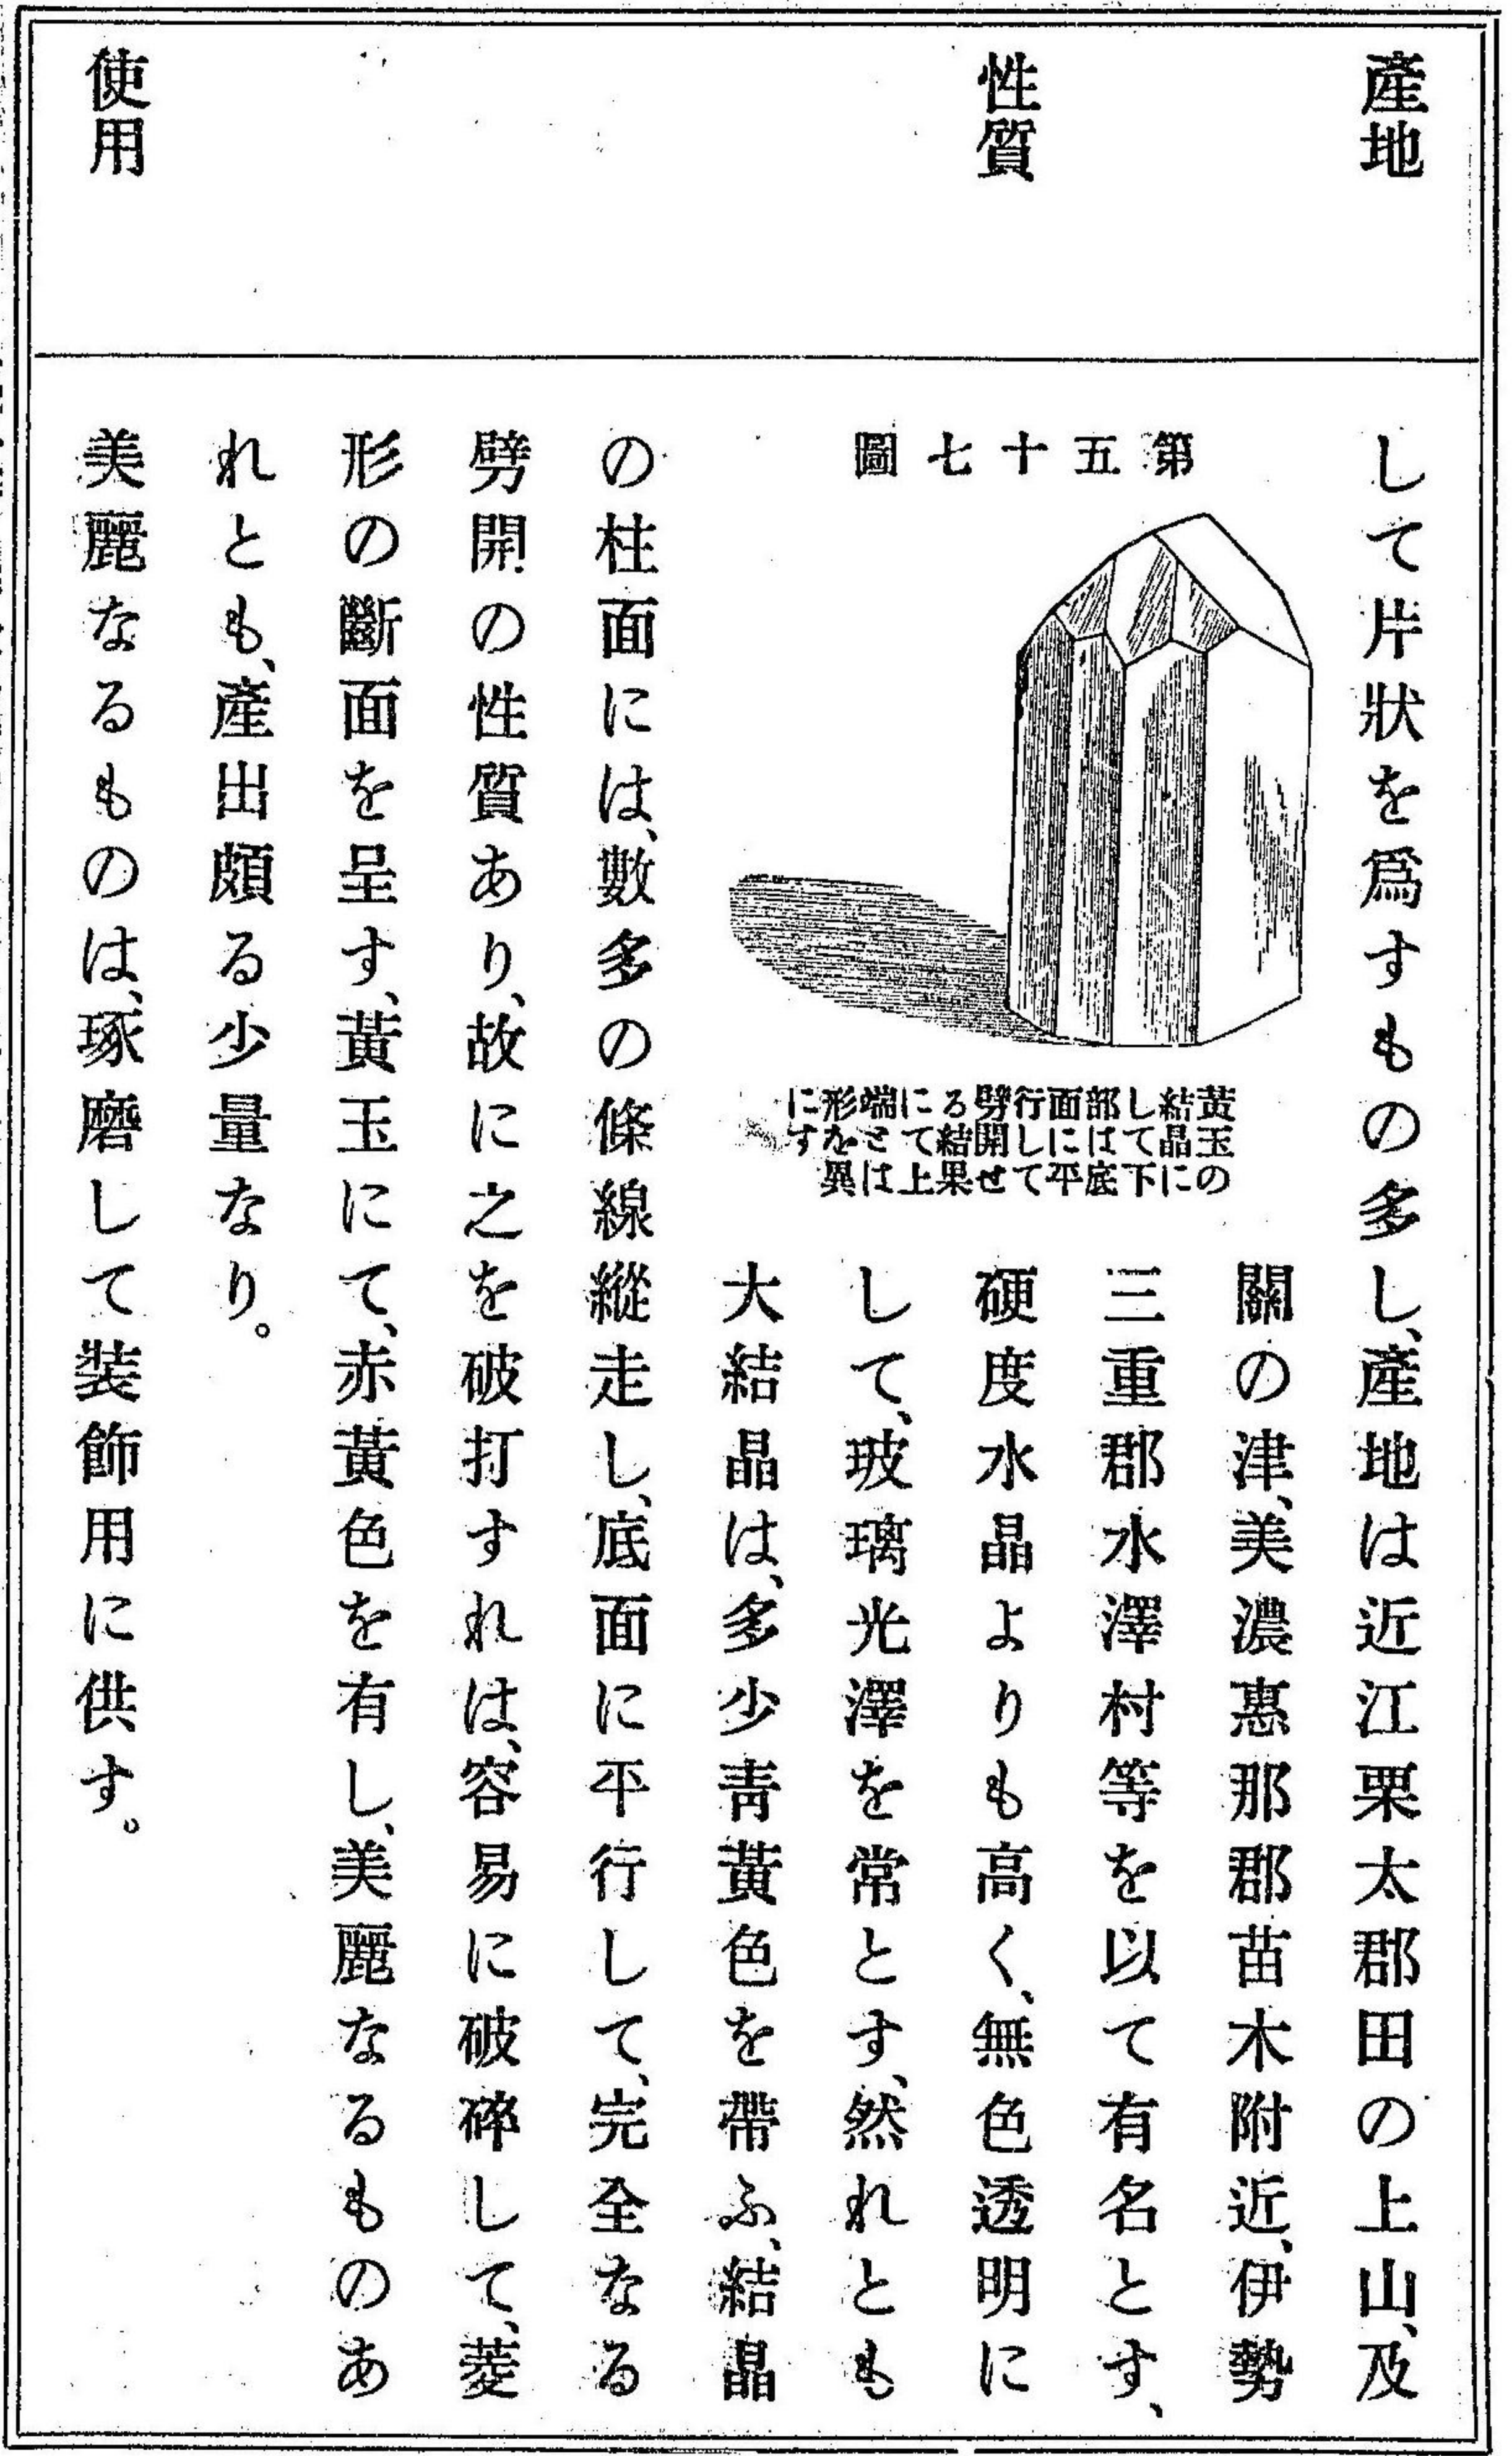 產地
性質
使用
して片狀を爲すもの多し、產地は近江栗太郡田の上山、及
第五十七圖
黃玉の
結晶に
して下
部は底
面に平
行して
劈開せ
る結果
にて上
端とは
形を異
にす
關の津、美濃惠那郡苗木附近、伊勢
三重郡水澤村等を以て有名とす、
硬度水晶よりも高く、無色透明に
して、玻璃光澤を常とす、然れとも
大結晶は、多少靑黃色を帶ふ、結晶
の柱面には、數多の條線縱走し、底面に平行して、完全なる
劈開の性質あり、故に之を破打すれは、容易に破碎して、菱
形の斷面を呈す、黃玉にて、赤黃色を有し、美麗なるものあ
れとも、產出頗る少量なり。
美麗なるものは、琢磨して裝飾用に供す。